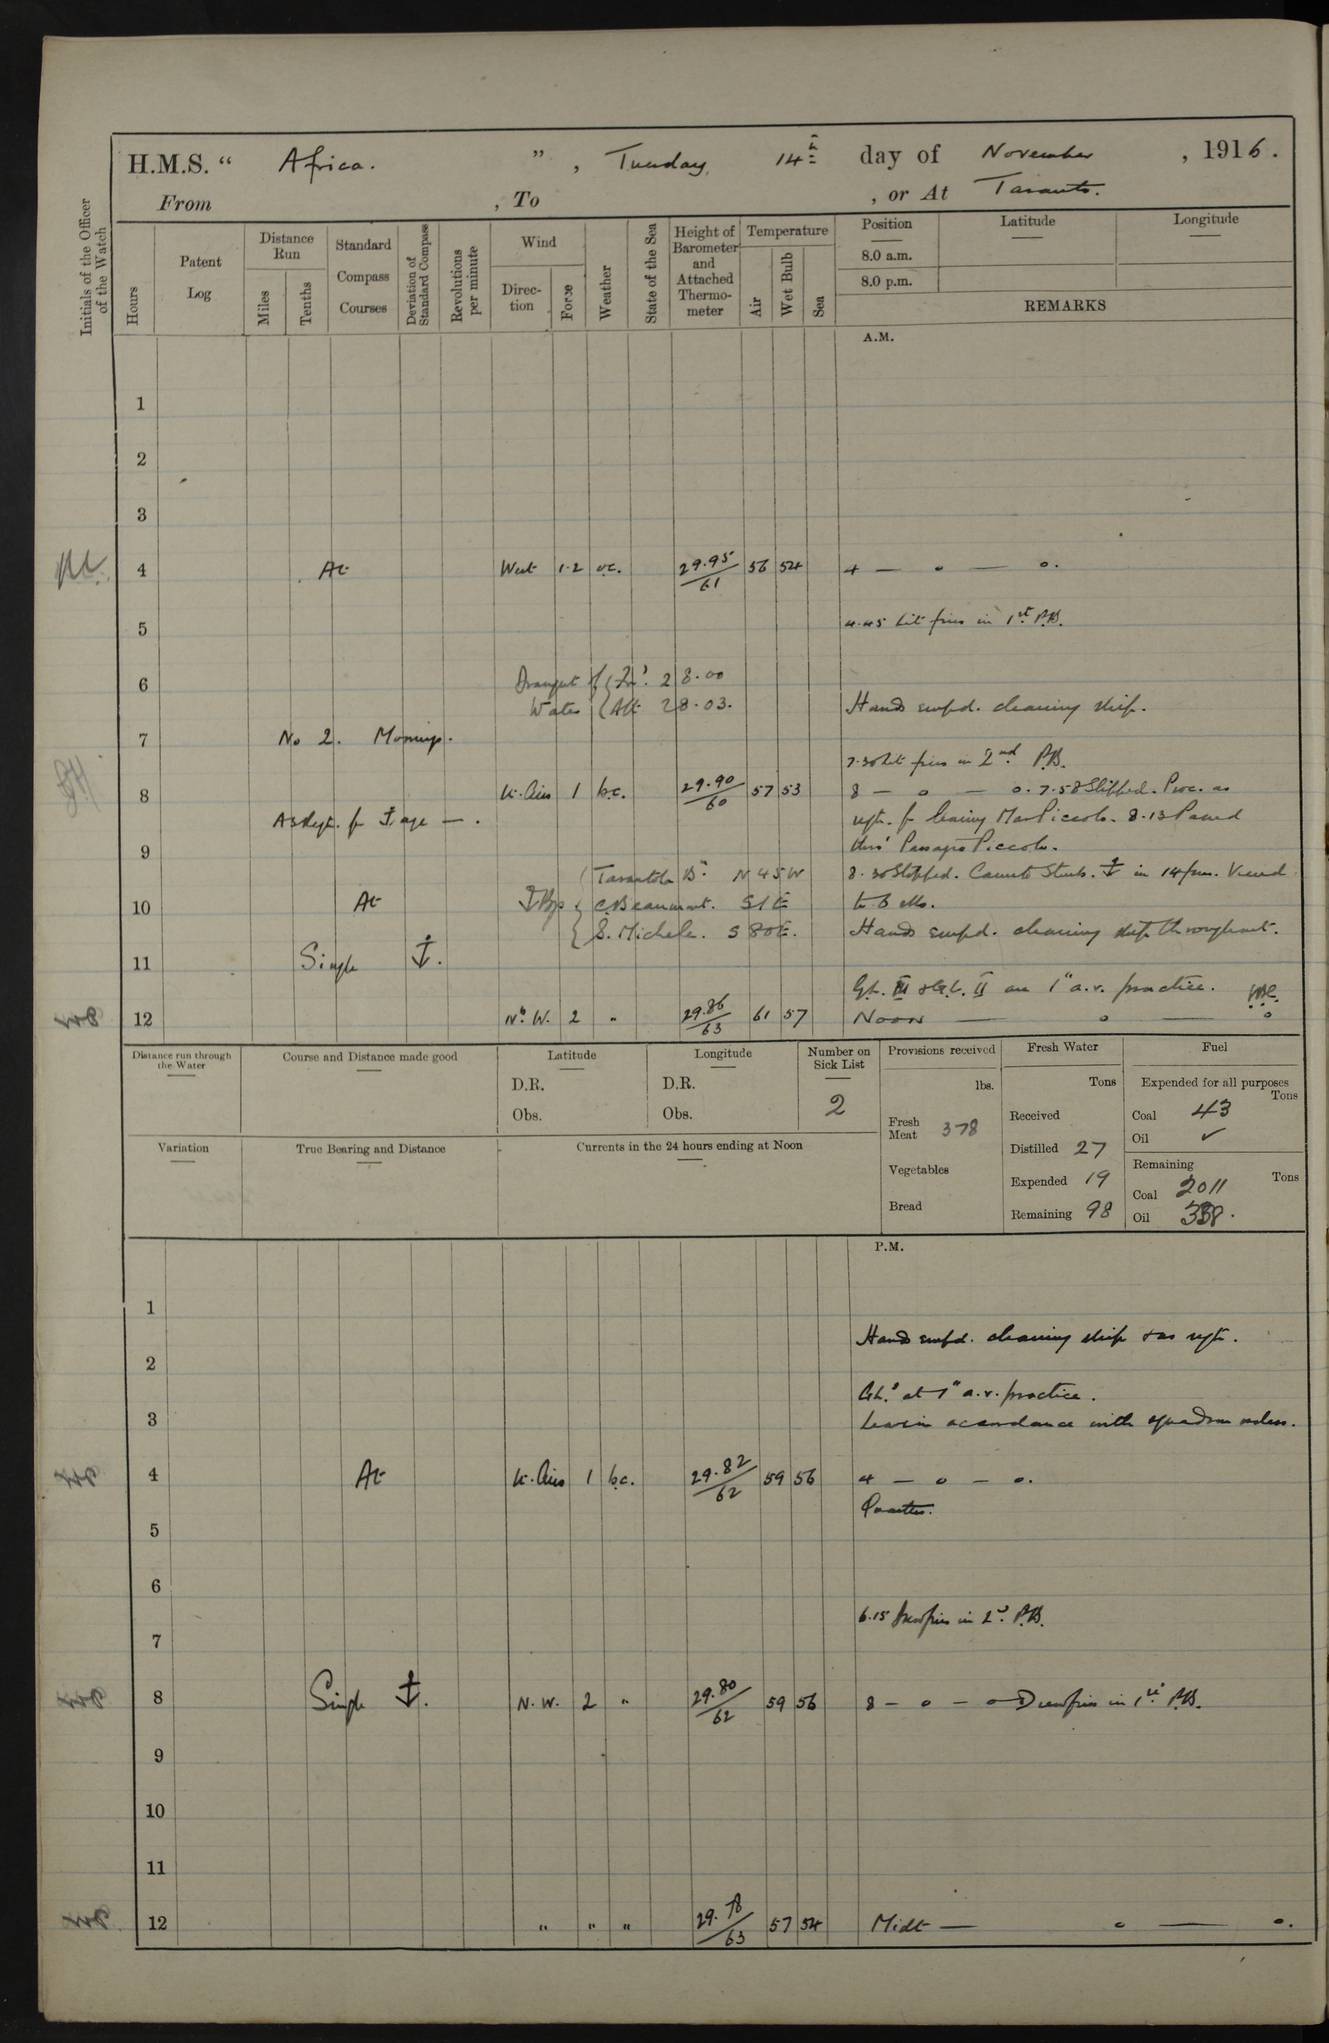 H.M.S. “ Africa. ” , Tuesday, 14th day of November , 1916.
From , To , or At Taranto.
Initials of the Officer of the Watch
Hours
Patent Log
Distance Run
Miles
Tenths
Standard Compass Courses
Deviation of Standard Compass
Revolutions per minute
Wind
Direction
Force
Weather
State of the Sea
Height of Barometer and Attached Thermometer
Temperature
Air
Wet Bulb
Sea
Position
Latitude
Longitude
8.0 a.m.
8.0 p.m.
REMARKS
A.M.
1
2
3
4 At West 1.2 o.c. 29.95/61 56 54 4 — o — o.
5 4.45 Lit fires in 1st P.B.
6 Draught of Water { For'd. 28.00
{ Aft 28.03. Hands empd. cleaning ship.
7 No 2. Moorings. 7.30 Lit fires in 2nd P.B.
8 Lt. Airs 1 b.c. 29.90/60 57 53 8 — o — o. 7.58 Slipped. Proc. as
As Reqte. for ⚓age — . reqte. for leaving Mar Piccolo. 8.13 Passed
9 thro' Passage Piccolo.
{ Tarantola By. N 45 W 8.30 Stopped. Came to Starb. ⚓ in 14 fms. Veered
10 At ⚓ Bgs { C. Beaumont. S 1 E to 6 shs.
{ S. Michele. S 80 E. Hands empd. cleaning ship throughout.
11 Single ⚓.
G.L. III & G.L. II at 1" a.r. practice.
12 Nth W. 2 " 29.86/63 61 57 Noon — o — o
Distance run through the Water
Course and Distance made good
Latitude
D.R.
Obs.
Longitude
D.R.
Obs.
Number on Sick List
2
Provisions received
lbs.
Fresh Meat 378
Vegetables
Bread
Fresh Water
Tons
Received
Distilled 27
Expended 19
Remaining 98
Fuel
Expended for all purposes
Tons
Coal 43
Oil ✓
Remaining
Tons
Coal 2011
Oil 338.
Variation
True Bearing and Distance
Currents in the 24 hours ending at Noon
P.M.
1
Hands empd. cleaning ship & as reqte.
2
G.L.s at 1" a.r. practice.
3 Leave in accordance with squadron orders.
4 At Lt. Airs 1 b.c. 29.82/62 59 56 4 — o — o.
Quarters.
5
6
6.15 Drew fires in 2nd P.B.
7
8 Single ⚓. N.W. 2 " 29.80/62 59 56 8 — o — o Drew fires in 1st P.B.
9
10
11
12 " " " 29.78/63 57 54 Midt — o — o.